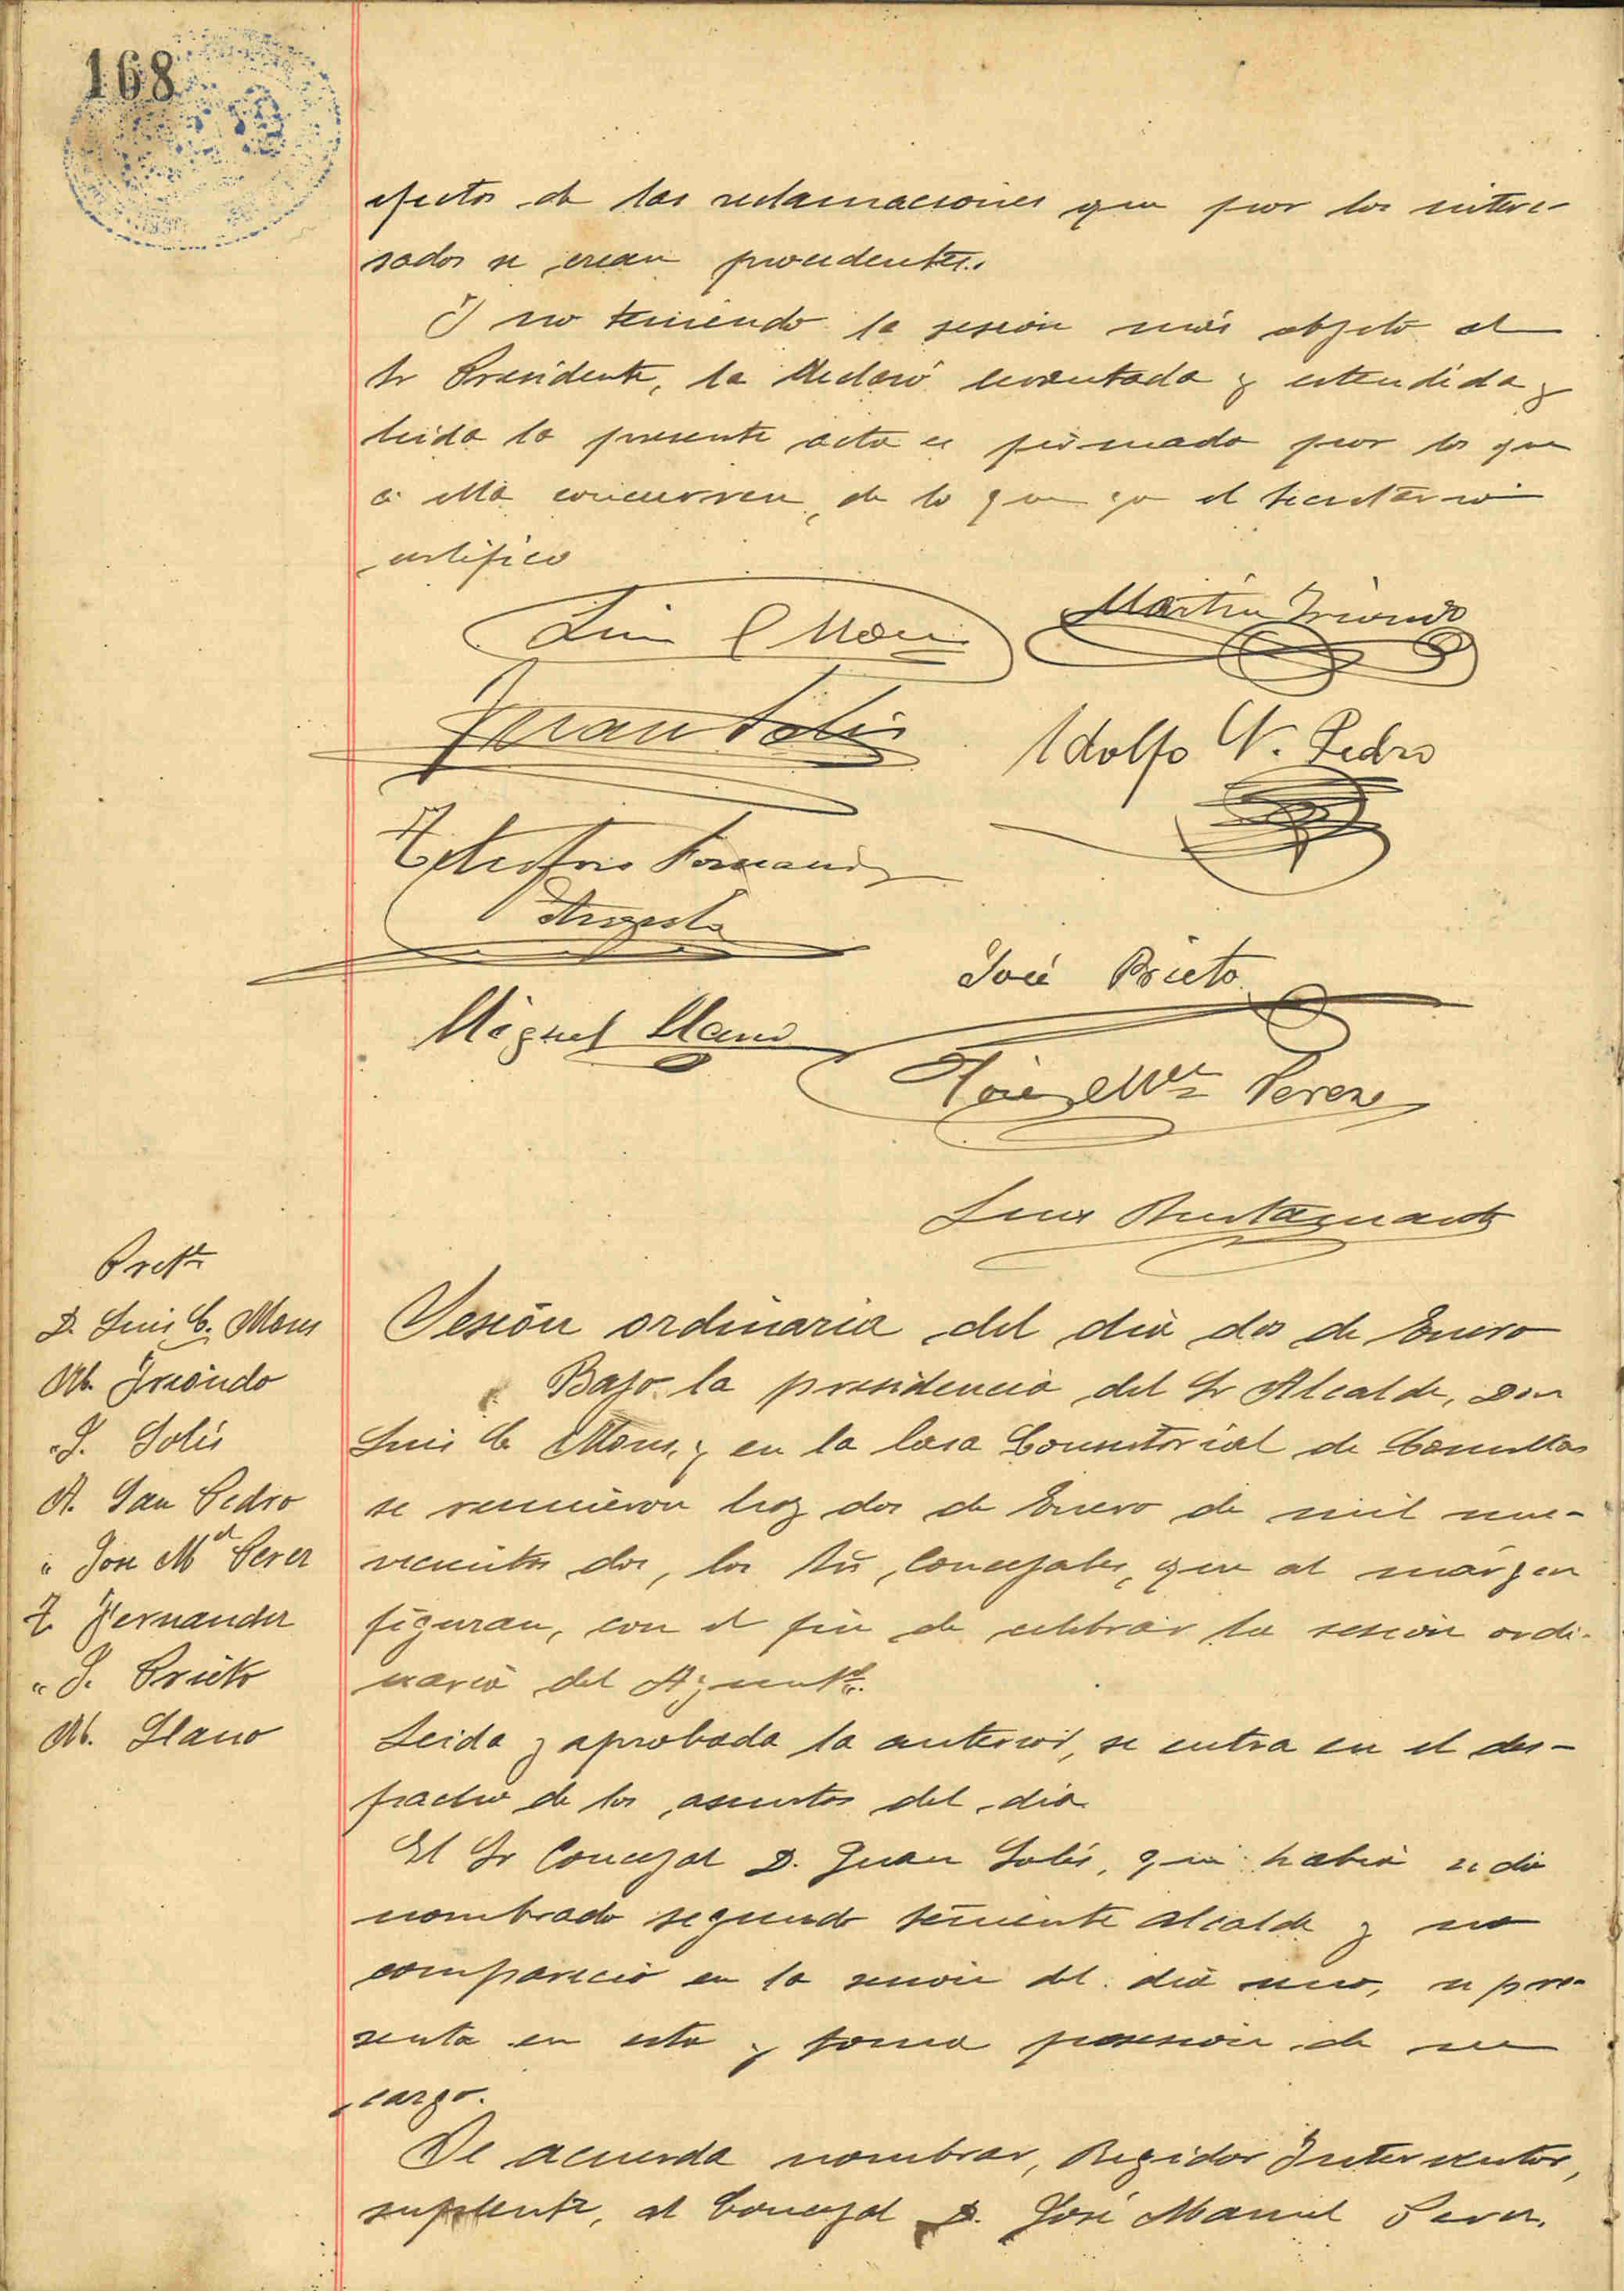 168
efectos de las reclamaciones que por los intere-
sados se crean procedentes.
Y no teniendo la sesión más objeto el
Sr Presidente, la declaró levantada y estendida y
leida la presente acta es firmada por los que
a ella concurren, de lo que yo el Secretario
certifico
Luis C Mons
Martin Iriondo
Juan Solis
Adolfo S. Pedro
Telesforo Fernandez
Argüeta
José Prieto
Miguel Llano
José Mª Perez
Luis Bustamante
D. Luis C. Mons
M. Iriondo
"J. Solis
A. San Pedro
" Jose Mª Perez
T. Fernandez
"J. Prieto
M. Llano
Sesión ordinaria del dia dos de Enero
Bajo la presidencia del Sr Alcalde, Don
Luis C Mons, y en la Casa Consistorial de Comillas
se reunieron hoy dos de Enero de mil nue-
vecientos dos, los Srs Concejales, que al márgen
figuran, con el fin de celebrar la sesión ordi-
naria del Ayuntº.
Leida y aprobada la anterior, se entra en el des-
pacho de los asuntos del dia
El Sr Concejal D. Juan Solis, que habia sido
nombrado segundo teniente alcalde y no
compareció en la sesión del dia uno, se pre-
senta en esta y toma posesión de su
cargo.
Se acuerda nombrar, Regidor Interventor,
suplente, al Concejal D. José Manuel Perez.